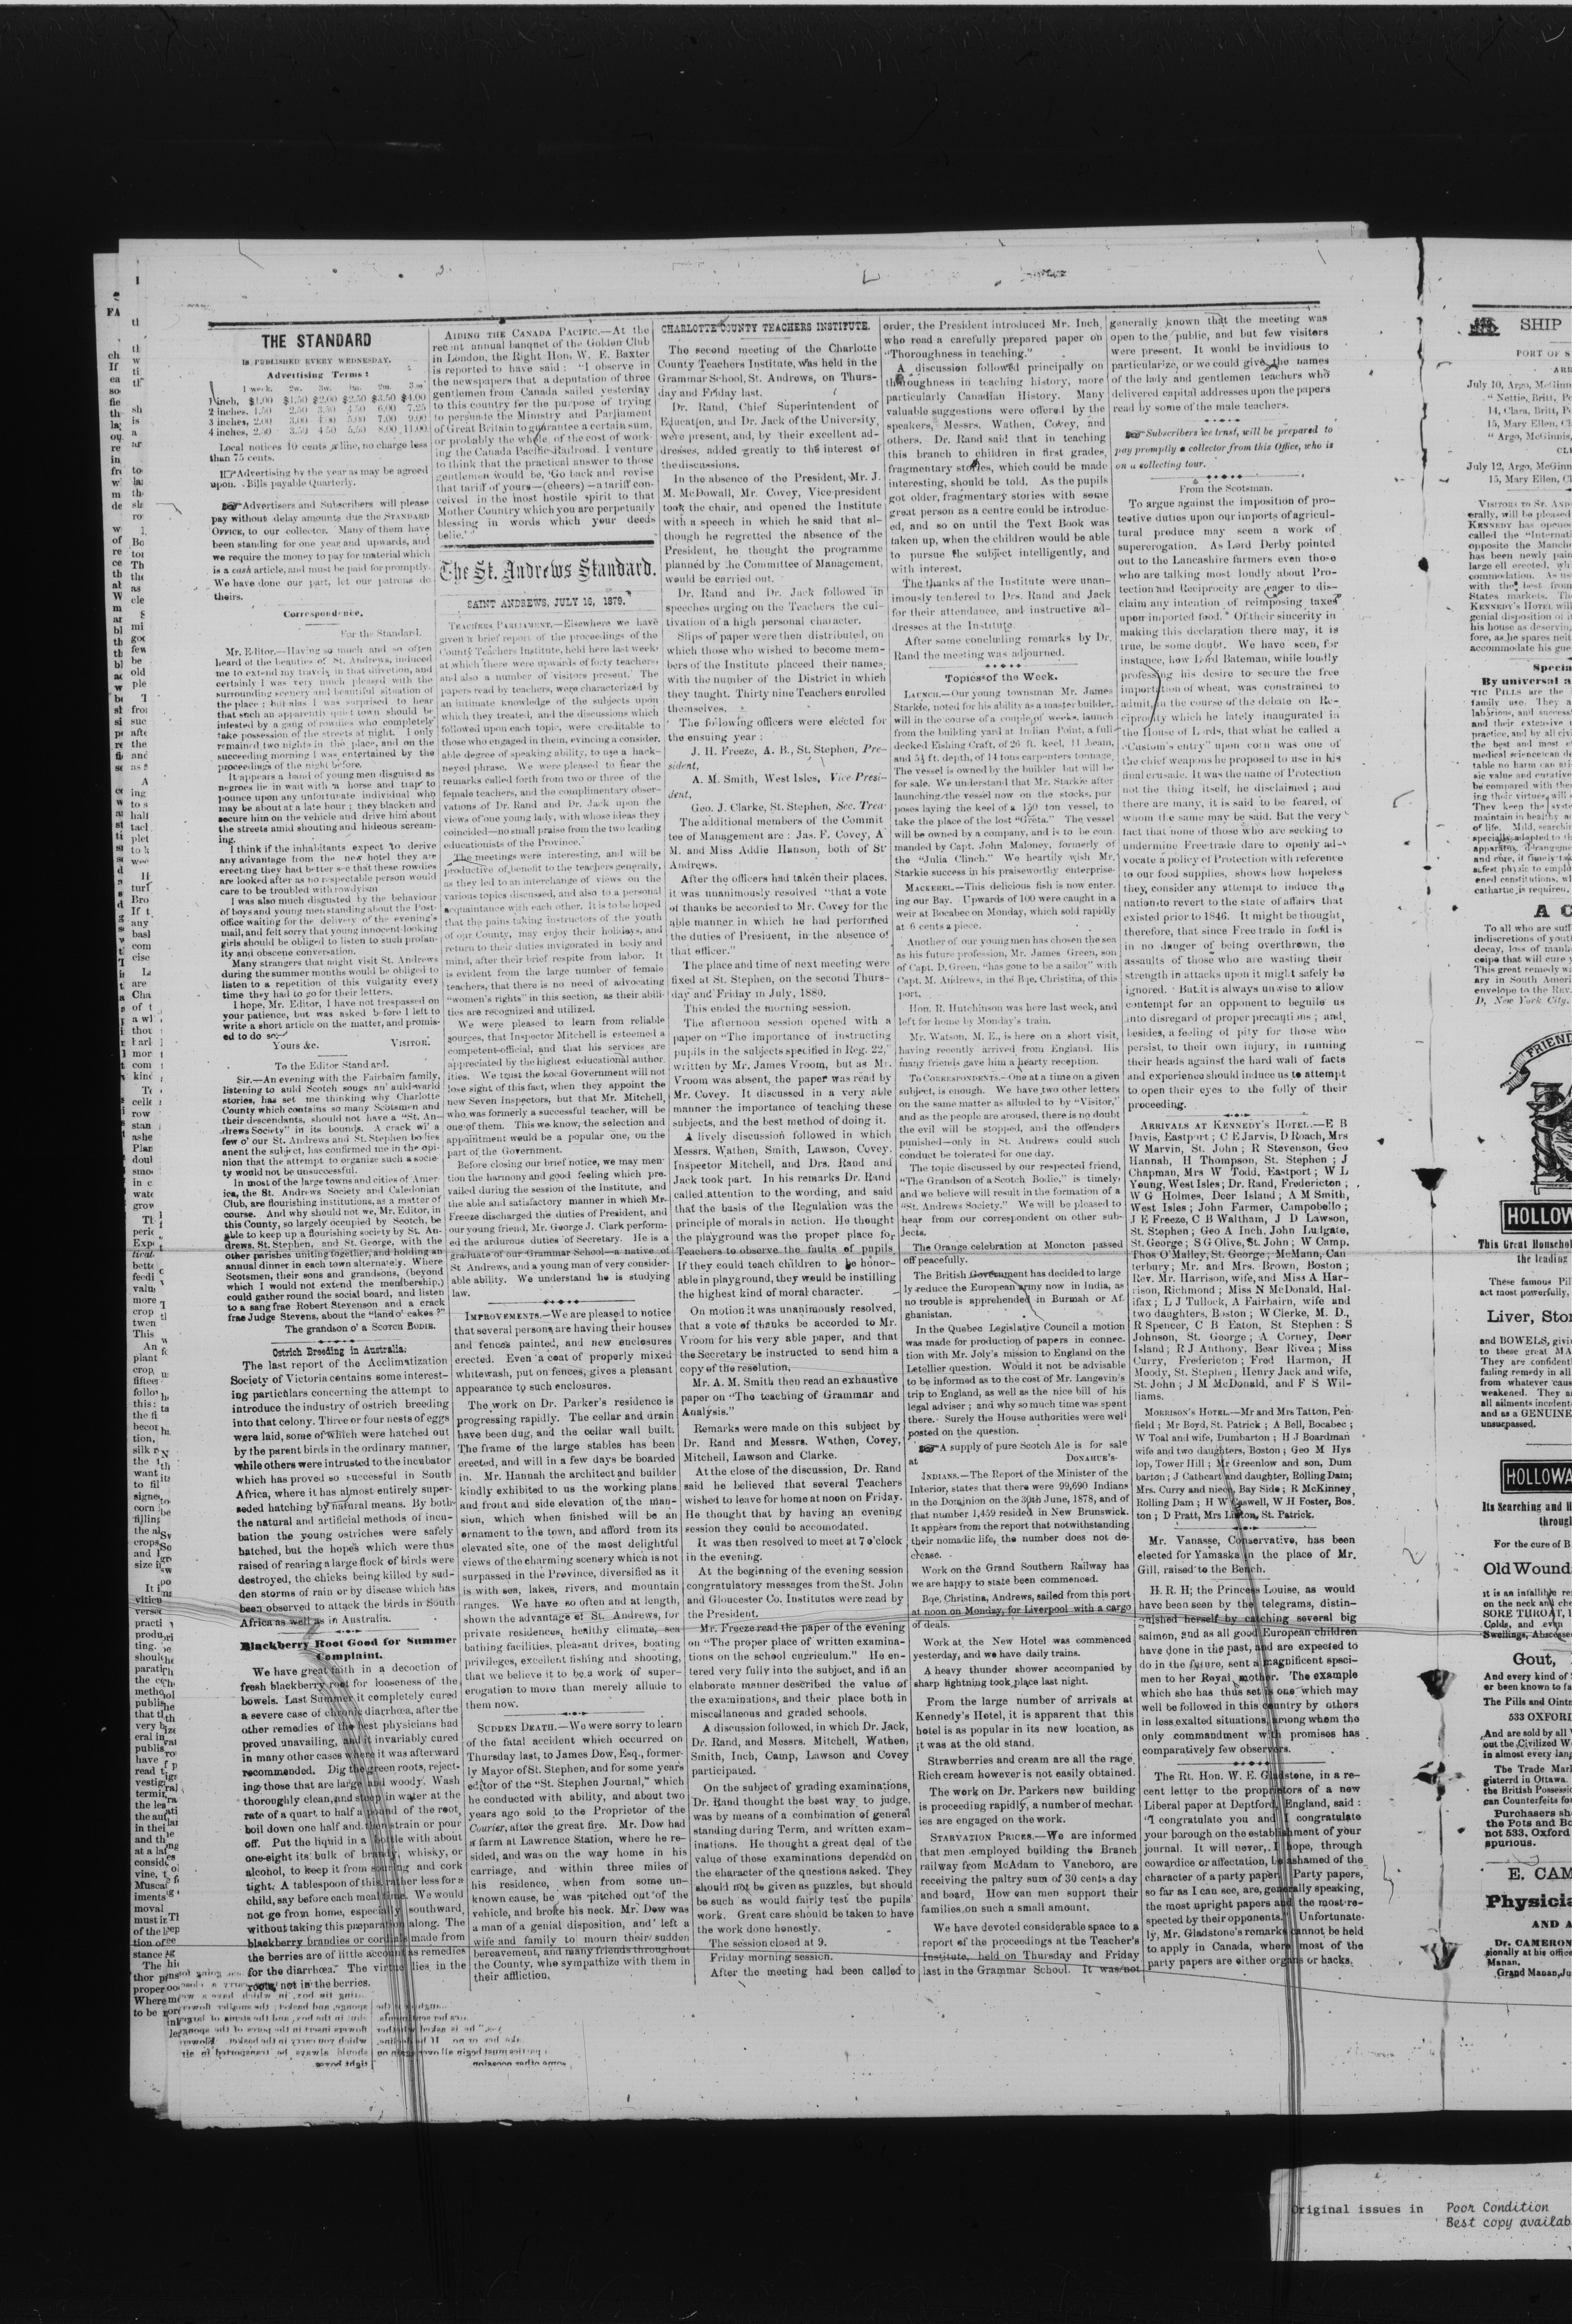 THE STANDARD
IS PUBLISHED EVERY WEDNESDAY.
Advertising Terms:
1 week. 2w. 3w. 1m. 2m. 3m
1 inch, $1.00 $1.50 $2.00 $2.50 $3.50 $4.00
2 inches, 1.50 2.50 3.50 4.50 6.00 7.25
3 inches, 2.00 3.00 4.00 5.00 7.00 9.00
4 inches, 2.50 3.50 4.50 5.50 8.00 11.00
Local notices 10 cents a line, no charge less
than 75 cents.
Advertising by the year as may be agreed
upon. Bills payable Quarterly.
Advertisers and Subscribers will please
pay without delay amounts due the STANDARD
OFFICE, to our collector. Many of them have
been standing for one year and upwards, and
we require the money to pay for material which
is a cash article, and must be paid for promptly.
We have done our part, let our patrons do
theirs.
Correspondence.
For the Standard.
Mr. Editor.—Having so much and so often
heard of the beauties of St. Andrews, induced
me to extend my travels in that direction, and
certainly I was very much pleased with the
surrounding scenery and beautiful situation of
the place; but alas I was surprised to hear
that such an apparently quiet town should be
infested by a gang of rowdies who completely
take possession of the streets at night. I only
remained two nights in the place, and on the
succeeding morning I was entertained by the
proceedings of the night before.
It appears a band of young men disguised as
negroes lie in wait with a horse and trap to
pounce upon any unfortunate individual who
may be about at a late hour; they blacken and
secure him on the vehicle and drive him about
the streets amid shouting and hideous scream-
ing.
I think if the inhabitants expect to derive
any advantage from the new hotel they are
erecting they had better see that these rowdies
are looked after as no respectable person would
care to be troubled with rowdyism
I was also much disgusted by the behaviour
of boys and young men standing about the Post-
office waiting for the delivery of the evening's
mail, and felt sorry that young innocent looking
girls should be obliged to listen to such profan-
ity and obscene conversation.
Many strangers that might visit St. Andrews
during the summer months would be obliged to
listen to a repetition of this vulgarity every
time they had to go for their letters.
I hope, Mr. Editor, I have not trespassed on
your patience, but was asked before I left to
write a short article on the matter, and promis-
ed to do so.
Yours &c. VISITOR.
To the Editor Standard.
Sir.—An evening with the Fairbairn family,
listening to auld Scotch songs an' auld-warld
stories, has set me thinking why Charlotte
County which contains so many Scotsmen and
their descendants, should not have a "St. An-
drews Society" in its bounds. A crack wi' a
few o' our St. Andrews and St. Stephen bodies
anent the subject, has confirmed me in the opi-
nion that the attempt to organize such a socie-
ty would not be unsuccessful.
In most of the large towns and cities of Amer-
ica, the St. Andrews Society and Caledonian
Club, are flourishing institutions, as a matter of
course. And why should not we, Mr. Editor, in
this County, so largely occupied by Scotch, be
able to keep up a flourishing society by St. An-
drews, St. Stephen, and St. George, with the
other parishes uniting together, and holding an
annual dinner in each town alternately. Where
Scotsmen, their sons and grandsons, (beyond
which I would not extend the membership,)
could gather round the social board, and listen
to a sang frae Robert Stevenson and a crack
frae Judge Stevens, about the "land o' cakes?"
The grandson o' a SCOTCH BODIE.
Ostrich Breeding in Australia.
The last report of the Acclimatization
Society of Victoria contains some interest-
ing particulars concerning the attempt to
introduce the industry of ostrich breeding
into that colony. Three or four nests of eggs
were laid, some of which were hatched out
by the parent birds in the ordinary manner,
while others were intrusted to the incubator
which has proved so successful in South
Africa, where it has almost entirely super-
seded hatching by natural means. By both
the natural and artificial methods of incu-
bation the young ostriches were safely
hatched, but the hopes which were thus
raised of rearing a large flock of birds were
destroyed, the chicks being killed by sud-
den storms of rain or by disease which has
been observed to attack the birds in South
Africa as well as in Australia.
Blackberry Root Good for Summer
Complaint.
We have great faith in a decoction of
fresh blackberry root for looseness of the
bowels. Last Summer it completely cured
a severe case of chronic diarrhœa, after the
other remedies of the best physicians had
proved unavailing, and it invariably cured
in many other cases where it was afterward
recommended. Dig the green roots, reject-
ing those that are large and woody. Wash
thoroughly clean, and steep in water at the
rate of a quart to half a pound of the root,
boil down one half and then strain or pour
off. Put the liquid in a bottle with about
one-eight its bulk of brandy, whisky, or
alcohol, to keep it from souring and cork
tight. A tablespoon of this, rather less for a
child, say before each meal time. We would
not go from home, especially southward,
without taking this preparation along. The
blackberry brandies or cordials made from
the berries are of little account as remedies
for the diarrhœa. The virtue lies in the
roots, not in the berries.
AIDING THE CANADA PACIFIC.—At the
recent annual banquet of the Golden Club
in London, the Right Hon. W. E. Baxter
is reported to have said: "I observe in
the newspapers that a deputation of three
gentlemen from Canada sailed yesterday
to this country for the purpose of trying
to persuade the Ministry and Parliament
of Great Britain to guarantee a certain sum,
or probably the whole, of the cost of work-
ing the Canada Pacific Railroad. I venture
to think that the practical answer to those
gentlemen would be, 'Go back and revise
that tariff of yours—(cheers)—a tariff con-
ceived in the most hostile spirit to that
Mother Country which you are perpetually
blessing in words which your deeds
belie.'"
The St. Andrews Standard.
SAINT ANDREWS, JULY 16, 1879.
TEACHERS PARLIAMENT.—Elsewhere we have
given a brief report of the proceedings of the
County Teachers Institute, held here last week
at which there were upwards of forty teachers,
and also a number of visitors present. The
papers read by teachers, were characterized by
an intimate knowledge of the subjects upon
which they treated, and the discussions which
followed upon each topic, were creditable to
those who engaged in them, evincing a consider-
able degree of speaking ability, to use a hack-
neyed phrase. We were pleased to hear the
remarks called forth from two or three of the
female teachers, and the complimentary obser-
vations of Dr. Rand and Dr. Jack upon the
views of one young lady, with whose ideas they
coincided—no small praise from the two leading
educationists of the Province.
The meetings were interesting, and will be
productive of benefit to the teachers generally,
as they led to an interchange of views on the
various topics discussed, and also to a personal
acquaintance with each other. It is to be hoped
that the pains taking instructors of the youth
of our County, may enjoy their holidays, and
return to their duties invigorated in body and
mind, after their brief respite from labor. It
is evident from the large number of female
teachers, that there is no need of advocating
"women's rights" in this section, as their abili-
ties are recognized and utilized.
We were pleased to learn from reliable
sources, that Inspector Mitchell is esteemed a
competent official, and that his services are
appreciated by the highest educational author-
ities. We trust the Local Government will not
lose sight of this fact, when they appoint the
new Seven Inspectors, but that Mr. Mitchell,
who was formerly a successful teacher, will be
one of them. This we know, the selection and
appointment would be a popular one, on the
part of the Government.
Before closing our brief notice, we may men
tion the harmony and good feeling which pre-
vailed during the session of the Institute, and
the able and satisfactory manner in which Mr.
Freeze discharged the duties of President, and
our young friend, Mr. George J. Clark perform-
ed the ardurous duties of Secretary. He is a
graduate of our Grammar School—a native of
St. Andrews, and a young man of very consider-
able ability. We understand he is studying
law.
IMPROVEMENTS.—We are pleased to notice
that several persons are having their houses
and fences painted, and new enclosures
erected. Even a coat of properly mixed
whitewash, put on fences, gives a pleasant
appearance to such enclosures.
The work on Dr. Parker's residence is
progressing rapidly. The cellar and drain
have been dug, and the cellar wall built.
The frame of the large stables has been
erected, and will in a few days be boarded
in. Mr. Hannah the architect and builder
kindly exhibited to us the working plans
and front and side elevation of the man-
sion, which when finished will be an
ornament to the town, and afford from its
elevated site, one of the most delightful
views of the charming scenery which is not
surpassed in the Province, diversified as it
is with sea, lakes, rivers, and mountain
ranges. We have so often and at length,
shown the advantage of St. Andrews, for
private residences, healthy climate, sea
bathing facilities, pleasant drives, boating
privileges, excellent fishing and shooting,
that we believe it to be a work of super-
erogation to more than merely allude to
them now.
SUDDEN DEATH.—We were sorry to learn
of the fatal accident which occurred on
Thursday last, to James Dow, Esq., former-
ly Mayor of St. Stephen, and for some years
editor of the "St. Stephen Journal," which
he conducted with ability, and about two
years ago sold to the Proprietor of the
Courier, after the great fire. Mr. Dow had
a farm at Lawrence Station, where he re-
sided, and was on the way home in his
carriage, and within three miles of
his residence, when from some un-
known cause, he was pitched out of the
vehicle, and broke his neck. Mr. Dow was
a man of a genial disposition, and left a
wife and family to mourn their sudden
bereavement, and many friends throughout
the County, who sympathize with them in
their affliction.
CHARLOTTE COUNTY TEACHERS INSTITUTE.
The second meeting of the Charlotte
County Teachers Institute, was held in the
Grammar School, St. Andrews, on Thurs-
day and Friday last.
Dr. Rand, Chief Superintendent of
Education, and Dr. Jack of the University,
were present, and, by their excellent ad-
dresses, added greatly to the interest of
the discussions.
In the absence of the President, Mr. J.
M. McDowall, Mr. Covey, Vice-president
took the chair, and opened the Institute
with a speech in which he said that al-
though he regretted the absence of the
President, he thought the programme
planned by the Committee of Management,
would be carried out.
Dr. Rand and Dr. Jack followed in
speeches urging on the Teachers the cul-
tivation of a high personal character.
Slips of paper were then distributed, on
which those who wished to become mem-
bers of the Institute placeed their names,
with the number of the District in which
they taught. Thirty nine Teachers enrolled
themselves.
The following officers were elected for
the ensuing year:
J. H. Freeze, A. B., St. Stephen, Pre-
sident,
A. M. Smith, West Isles, Vice Presi-
dent,
Geo. J. Clarke, St. Stephen, Sec. Trea-
The additional members of the Commit
tee of Management are: Jas. F. Covey, A
M. and Miss Addie Hanson, both of St
Andrews.
After the officers had taken their places,
it was unanimously resolved "that a vote
of thanks be accorded to Mr. Covey for the
able manner in which he had performed
the duties of President, in the absence of
that officer."
The place and time of next meeting were
fixed at St. Stephen, on the second Thurs-
day and Friday in July, 1880.
This ended the morning session.
The afternoon session opened with a
paper on "The importance of instructing
pupils in the subjects specified in Reg. 22,"
written by Mr. James Vroom, but as Mr.
Vroom was absent, the paper was read by
Mr. Covey. It discussed in a very able
manner the importance of teaching these
subjects, and the best method of doing it.
A lively discussion followed in which
Messrs. Wathen, Smith, Lawson, Covey,
Inspector Mitchell, and Drs. Rand and
Jack took part. In his remarks Dr. Rand
called attention to the wording, and said
that the basis of the Regulation was the
principle of morals in action. He thought
the playground was the proper place for
Teachers to observe the faults of pupils.
If they could teach children to be honor-
able in playground, they would be instilling
the highest kind of moral character.
On motion it was unanimously resolved,
that a vote of thanks be accorded to Mr.
Vroom for his very able paper, and that
the Secretary be instructed to send him a
copy of the resolution.
Mr. A. M. Smith then read an exhaustive
paper on "The teaching of Grammar and
Analysis."
Remarks were made on this subject by
Dr. Rand and Messrs. Wathen, Covey,
Mitchell, Lawson and Clarke.
At the close of the discussion, Dr. Rand
said he believed that several Teachers
wished to leave for home at noon on Friday.
He thought that by having an evening
session they could be accomodated.
It was then resolved to meet at 7 o'clock
in the evening.
At the beginning of the evening session
congratulatory messages from the St. John
and Gloucester Co. Institutes were read by
the President.
Mr. Freeze read the paper of the evening
on "The proper place of written examina-
tions on the school curriculum." He en-
tered very fully into the subject, and in an
elaborate manner described the value of
the examinations, and their place both in
miscellaneous and graded schools.
A discussion followed, in which Dr. Jack,
Dr. Rand, and Messrs. Mitchell, Wathen,
Smith, Inch, Camp, Lawson and Covey
participated.
On the subject of grading examinations,
Dr. Rand thought the best way to judge,
was by means of a combination of general
standing during Term, and written exam-
inations. He thought a great deal of the
value of these examinations depended on
the character of the questions asked. They
should not be given as puzzles, but should
be such as would fairly test the pupils'
work. Great care should be taken to have
the work done honestly.
The session closed at 9.
Friday morning session.
After the meeting had been called to
order, the President introduced Mr. Inch,
who read a carefully prepared paper on
"Thoroughness in teaching."
A discussion followed principally on
thoroughness in teaching history, more
particularly Canadian History. Many
valuable suggestions were offered by the
speakers, Messrs. Wathen, Covey, and
others. Dr. Rand said that in teaching
this branch to children in first grades,
fragmentary stories, which could be made
interesting, should be told. As the pupils
got older, fragmentary stories with some
great person as a centre could be introduc-
ed, and so on until the Text Book was
taken up, when the children would be able
to pursue the subject intelligently, and
with interest.
The thanks of the Institute were unan-
imously tendered to Drs. Rand and Jack
for their attendance, and instructive ad-
dresses at the Institute.
After some concluding remarks by Dr.
Rand the meeting was adjourned.
Topics of the Week.
LAUNCH.—Our young townsman Mr. James
Starkie, noted for his ability as a master builder,
will in the course of a couple of weeks, launch
from the building yard at Indian Point, a full
decked Fishing Craft, of 26 ft. keel, 11 beam,
and 5½ ft. depth, of 14 tons carpenters tonnage.
The vessel is owned by the builder but will be
for sale. We understand that Mr. Starkie after
launching the vessel now on the stocks, pur
poses laying the keel of a 150 ton vessel, to
take the place of the lost "Greta." The vessel
will be owned by a company, and is to be com-
manded by Capt. John Maloney, formerly of
the "Julia Clinch." We heartily wish Mr.
Starkie success in his praiseworthy enterprise.
MACKEREL.—This delicious fish is now enter-
ing our Bay. Upwards of 100 were caught in a
weir at Bocabec on Monday, which sold rapidly
at 6 cents a piece.
Another of our young men has chosen the sea
as his future profession, Mr. James Green, son
of Capt. D. Green, "has gone to be a sailor" with
Capt. M. Andrews, in the Bqe. Christina, of this
port.
Hon. R. Hutchinson was here last week, and
left for home by Monday's train.
Mr. Watson, M. E., is here on a short visit,
having recently arrived from England. His
many friends gave him a hearty reception.
TO CORRESPONDENTS.—One at a time on a given
subject, is enough. We have two other letters
on the same matter as alluded to by "Visitor,"
and as the people are aroused, there is no doubt
the evil will be stopped, and the offenders
punished—only in St. Andrews could such
conduct be tolerated for one day.
The topic discussed by our respected friend,
"The Grandson of a Scotch Bodie," is timely;
and we believe will result in the formation of a
"St. Andrews Society." We will be pleased to
hear from our correspondent on other sub-
jects.
The Orange celebration at Moncton passed
off peacefully.
The British Government has decided to large
ly reduce the European army now in India, as
no trouble is apprehended in Burmah or Af-
ghanistan.
In the Quebec Legislative Council a motion
was made for production of papers in connec-
tion with Mr. Joly's mission to England on the
Letellier question. Would it not be advisable
to be informed as to the cost of Mr. Langevin's
trip to England, as well as the nice bill of his
legal adviser; and why so much time was spent
there. Surely the House authorities were well
posted on the question.
A supply of pure Scotch Ale is for sale
at DONAHUE'S-
INDIANS.—The Report of the Minister of the
Interior, states that there were 99,690 Indians
in the Dominion on the 30th June, 1878, and of
that number 1,459 resided in New Brunswick.
It appears from the report that notwithstanding
their nomadic life, the number does not de-
crease.
Work on the Grand Southern Railway has
we are happy to state been commenced.
Bqe, Christina, Andrews, sailed from this port
at noon on Monday, for Liverpool with a cargo
of deals.
Work at the New Hotel was commenced
yesterday, and we have daily trains.
A heavy thunder shower accompanied by
sharp lightning took place last night.
From the large number of arrivals at
Kennedy's Hotel, it is apparent that this
hotel is as popular in its new location, as
it was at the old stand.
Strawberries and cream are all the rage,
Rich cream however is not easily obtained.
The work on Dr. Parkers new building
is proceeding rapidly, a number of mechan-
ics are engaged on the work.
STARVATION PRICES.—We are informed
that men employed building the Branch
railway from McAdam to Vanceboro, are
receiving the paltry sum of 30 cents a day
and board, How can men support their
families on such a small amount.
We have devoted considerable space to a
report of the proceedings at the Teacher's
Institute, held on Thursday and Friday
last in the Grammar School. It was not
generally known that the meeting was
open to the public, and but few visitors
were present. It would be invidious to
particularize, or we could give the names
of the lady and gentlemen teachers who
delivered capital addresses upon the papers
read by some of the male teachers.
Subscribers we trust, will be prepared to
pay promptly a collector from this Office, who is
on a collecting tour.
From the Scotsman.
To argue against the imposition of pro-
tective duties upon our imports of agricul-
tural produce may seem a work of
supererogation. As Lord Derby pointed
out to the Lancashire farmers even those
who are talking most loudly about Pro-
tection and Reciprocity are eager to dis-
claim any intention of reimposing taxes
upon imported food. Of their sincerity in
making this declaration there may, it is
true, be some doubt. We have seen, for
instance, how Lord Bateman, while loudly
professing his desire to secure the free
importation of wheat, was constrained to
admit, in the course of the debate on Re-
ciprocity which he lately inaugurated in
the House of Lords, that what he called a
"Custom's entry" upon corn was one of
the chief weapons he proposed to use in his
final crusade. It was the name of Protection
not the thing itself, he disclaimed; and
there are many, it is said, to be feared, of
whom the same may be said. But the very
fact that none of those who are seeking to
undermine Free trade dare to openly ad-
vocate a policy of Protection with reference
to our food supplies, shows how hopeless
they consider any attempt to induce the
nation to revert to the state of affairs that
existed prior to 1846. It might be thought,
therefore, that since Free trade in food is
in no danger of being overthrown, the
assaults of those who are wasting their
strength in attacks upon it might safely be
ignored. But it is always unwise to allow
contempt for an opponent to beguile us
into disregard of proper precautions; and,
besides, a feeling of pity for those who
persist, to their own injury, in running
their heads against the hard wall of facts
and experience should induce us to attempt
to open their eyes to the folly of their
proceeding.
ARRIVALS AT KENNEDY'S HOTEL.—E B
Davis, Eastport; C E Jarvis, D Roach, Mrs
W Marvin, St. John; R Stevenson, Geo
Hannah, H Thompson, St. Stephen; J
Chapman, Mrs W Todd, Eastport; W L
Young, West Isles; Dr. Rand, Fredericton;
W G Holmes, Deer Island; A M Smith,
West Isles; John Farmer, Campobello;
J E Freeze, C B Waltham, J D Lawson,
St. Stephen; Geo A Inch, John Lulgate,
St. George; S G Olive, St. John; W Camp,
Thos O'Malley, St. George; McMann, Can
terbury; Mr. and Mrs. Brown, Boston;
Rev. Mr. Harrison, wife, and Miss A Har-
rison, Richmond; Miss N McDonald, Hal-
ifax; L J Tullock, A Fairbairn, wife and
two daughters, Boston; W Clerke, M. D.,
R Spencer, C B Eaton, St Stephen: S
Johnson, St. George; A Corney, Deer
Island; R J Anthony, Bear River; Miss
Curry, Fredericton; Fred Harmon, H
Moody, St. Stephen; Henry Jack and wife,
St. John; J M McDonald, and F S Wil-
liams.
MORRISON'S HOTEL.—Mr and Mrs Tatton, Pen-
field; Mr Boyd, St. Patrick; A Bell, Bocabec;
W Toal and wife, Dumbarton; H J Boardman
wife and two daughters, Boston; Geo M Hys
lop, Tower Hill; Mr Greenlow and son, Dum
barton; J Cathcart and daughter, Rolling Dam;
Mrs. Curry and niece, Bay Side; R McKinney
Rolling Dam; H W Caswell, W H Foster, Bos.
ton; D Pratt, Mrs Linton, St. Patrick.
Mr. Vanasse, Conservative, has been
elected for Yamaska in the place of Mr.
Gill, raised to the Bench.
H. R. H; the Princess Louise, as would
have been seen by the telegrams, distin-
guished herself by catching several big
salmon, and as all good European children
have done in the past, and are expected to
do in the future, sent a magnificent speci-
men to her Royal mother. The example
which she has thus set is one which may
well be followed in this country by others
in less exalted situations, among whom the
only commandment with promises has
comparatively few observers.
The Rt. Hon. W. E. Gladstone, in a re-
cent letter to the proprietors of a new
Liberal paper at Deptford, England, said:
"I congratulate you and I congratulate
your borough on the establishment of your
journal. It will never, I hope, through
cowardice or affectation, be ashamed of the
character of a party paper. Party papers,
so far as I can see, are, generally speaking,
the most upright papers and the most re-
spected by their opponents." Unfortunate-
ly, Mr. Gladstone's remarks cannot be held
to apply in Canada, where most of the
party papers are either organs or hacks.
SHIP
PORT OF S
July 10, Argo, McGinn
" Nettie, Britt, P
14, Clara, Britt, P
15, Mary Ellen, Cl
" Argo, McGinnis,
July 12, Argo, McGinn
15, Mary Ellen, Cl
Specia
By universal a
A C
D, New York City.
FRIEND
HOLLOW
This Great Househol
the leading
These famous Pil
act most powerfully,
Liver, Sto
and BOWELS, givi
to these great MA
They are confident
failing remedy in all
from whatever caus
weakened. They a
all ailments incident
and as a GENUINE
unsurpassed.
HOLLOWA
Its Searching and H
throug
For the cure of B
Old Wound
it is an infallible re
on the neck and che
SORE THROAT, l
Colds, and even
Swellings, Abscesse
Gout,
And every kind of
er been known to fa
The Pills and Ointn
533 OXFORD
And are sold by all
out the Civilized W
in almost every lang
The Trade Mar
gisterd in Ottawa.
the British Possessio
can Counterfeits fo
Purchasers sh
the Pots and Bo
not 533, Oxford
spurious.
E. CAM
Physicia
AND A
Dr. CAMERON
sionally at his office
Manan.
Grand Manan, Ju
Original issues in Poor Condition
Best copy availab